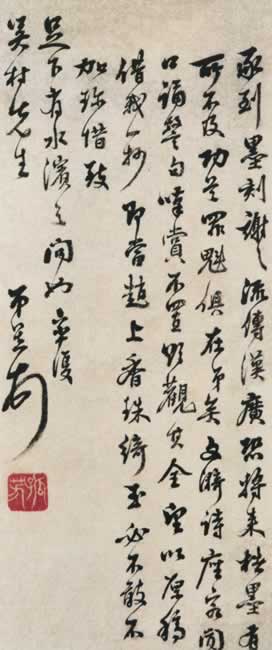 承到墨刻謝謝流傳漢廣恐將來楮墨有
所不及功首罪魁俱在弟矣文漪詩座客間
口誦警句嘆賞不置欲觀其全望以原稿
借我一抄即當趙上香珠綺玉必不敢不
加珍惜致
足下有水濱之問也率復
吳村先生
弟